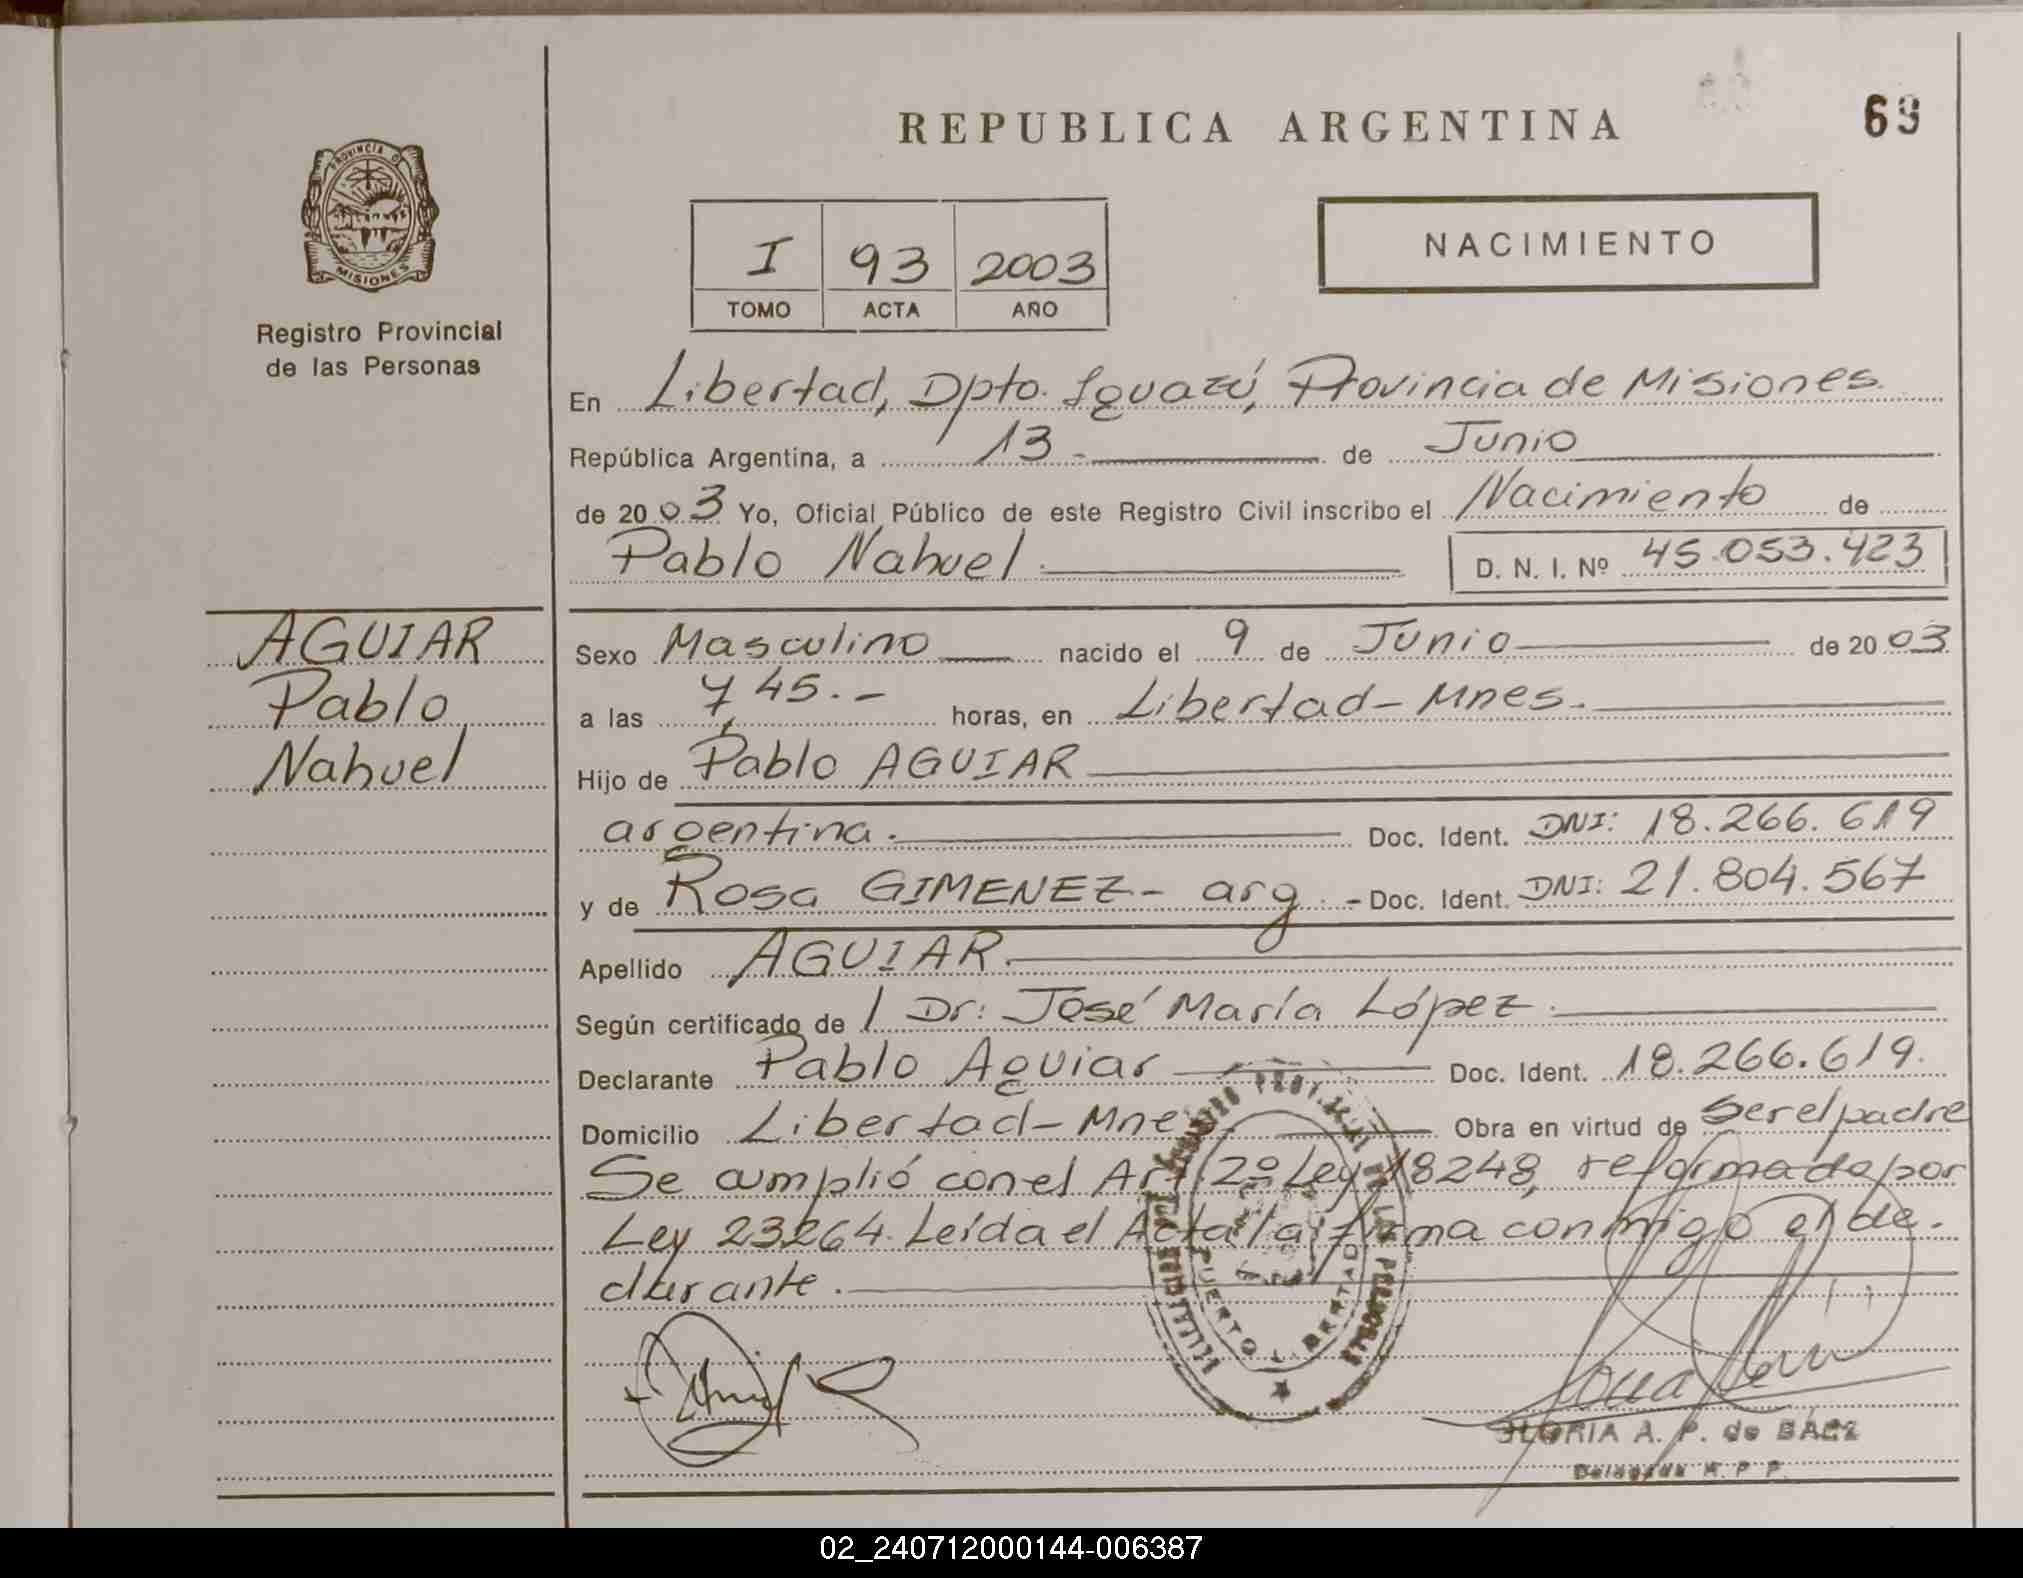 REPUBLICA ARGENTINA
69
PROVINCIA D
MISIONES
Registro Provincial
de las Personas
I 93 2003
TOMO ACTA AÑO
NACIMIENTO
En Libertad, Dpto. Iguazú, Provincia de Misiones.
República Argentina, a 13.- de Junio
de 2003 Yo, Oficial Público de este Registro Civil inscribo el Nacimiento de
Pablo Nahuel. D. N. I. Nº 45.053.423
AGUIAR
Pablo
Nahuel
Sexo Masculino nacido el 9 de Junio de 2003
a las 7,45.- horas, en Libertad-Mnes.
Hijo de Pablo AGUIAR
argentina. Doc. Ident. DNI: 18.266.619
y de Rosa GIMENEZ- arg.- Doc. Ident. DNI: 21.804.567
Apellido AGUIAR.
Según certificado de / Dr: José María López.
Declarante Pablo Aguiar Doc. Ident. 18.266.619.
Domicilio Libertad-Mnes. Obra en virtud de ser el padre
Se cumplió con el Art. 2º Ley 18248, reformada por
Ley 23264. Leída el Acta la firma conmigo el de-
clarante.
PUERTO LIBERTAD
GLORIA A. P. de BAEZ
Delegada R. P. P.
02_240712000144-006387